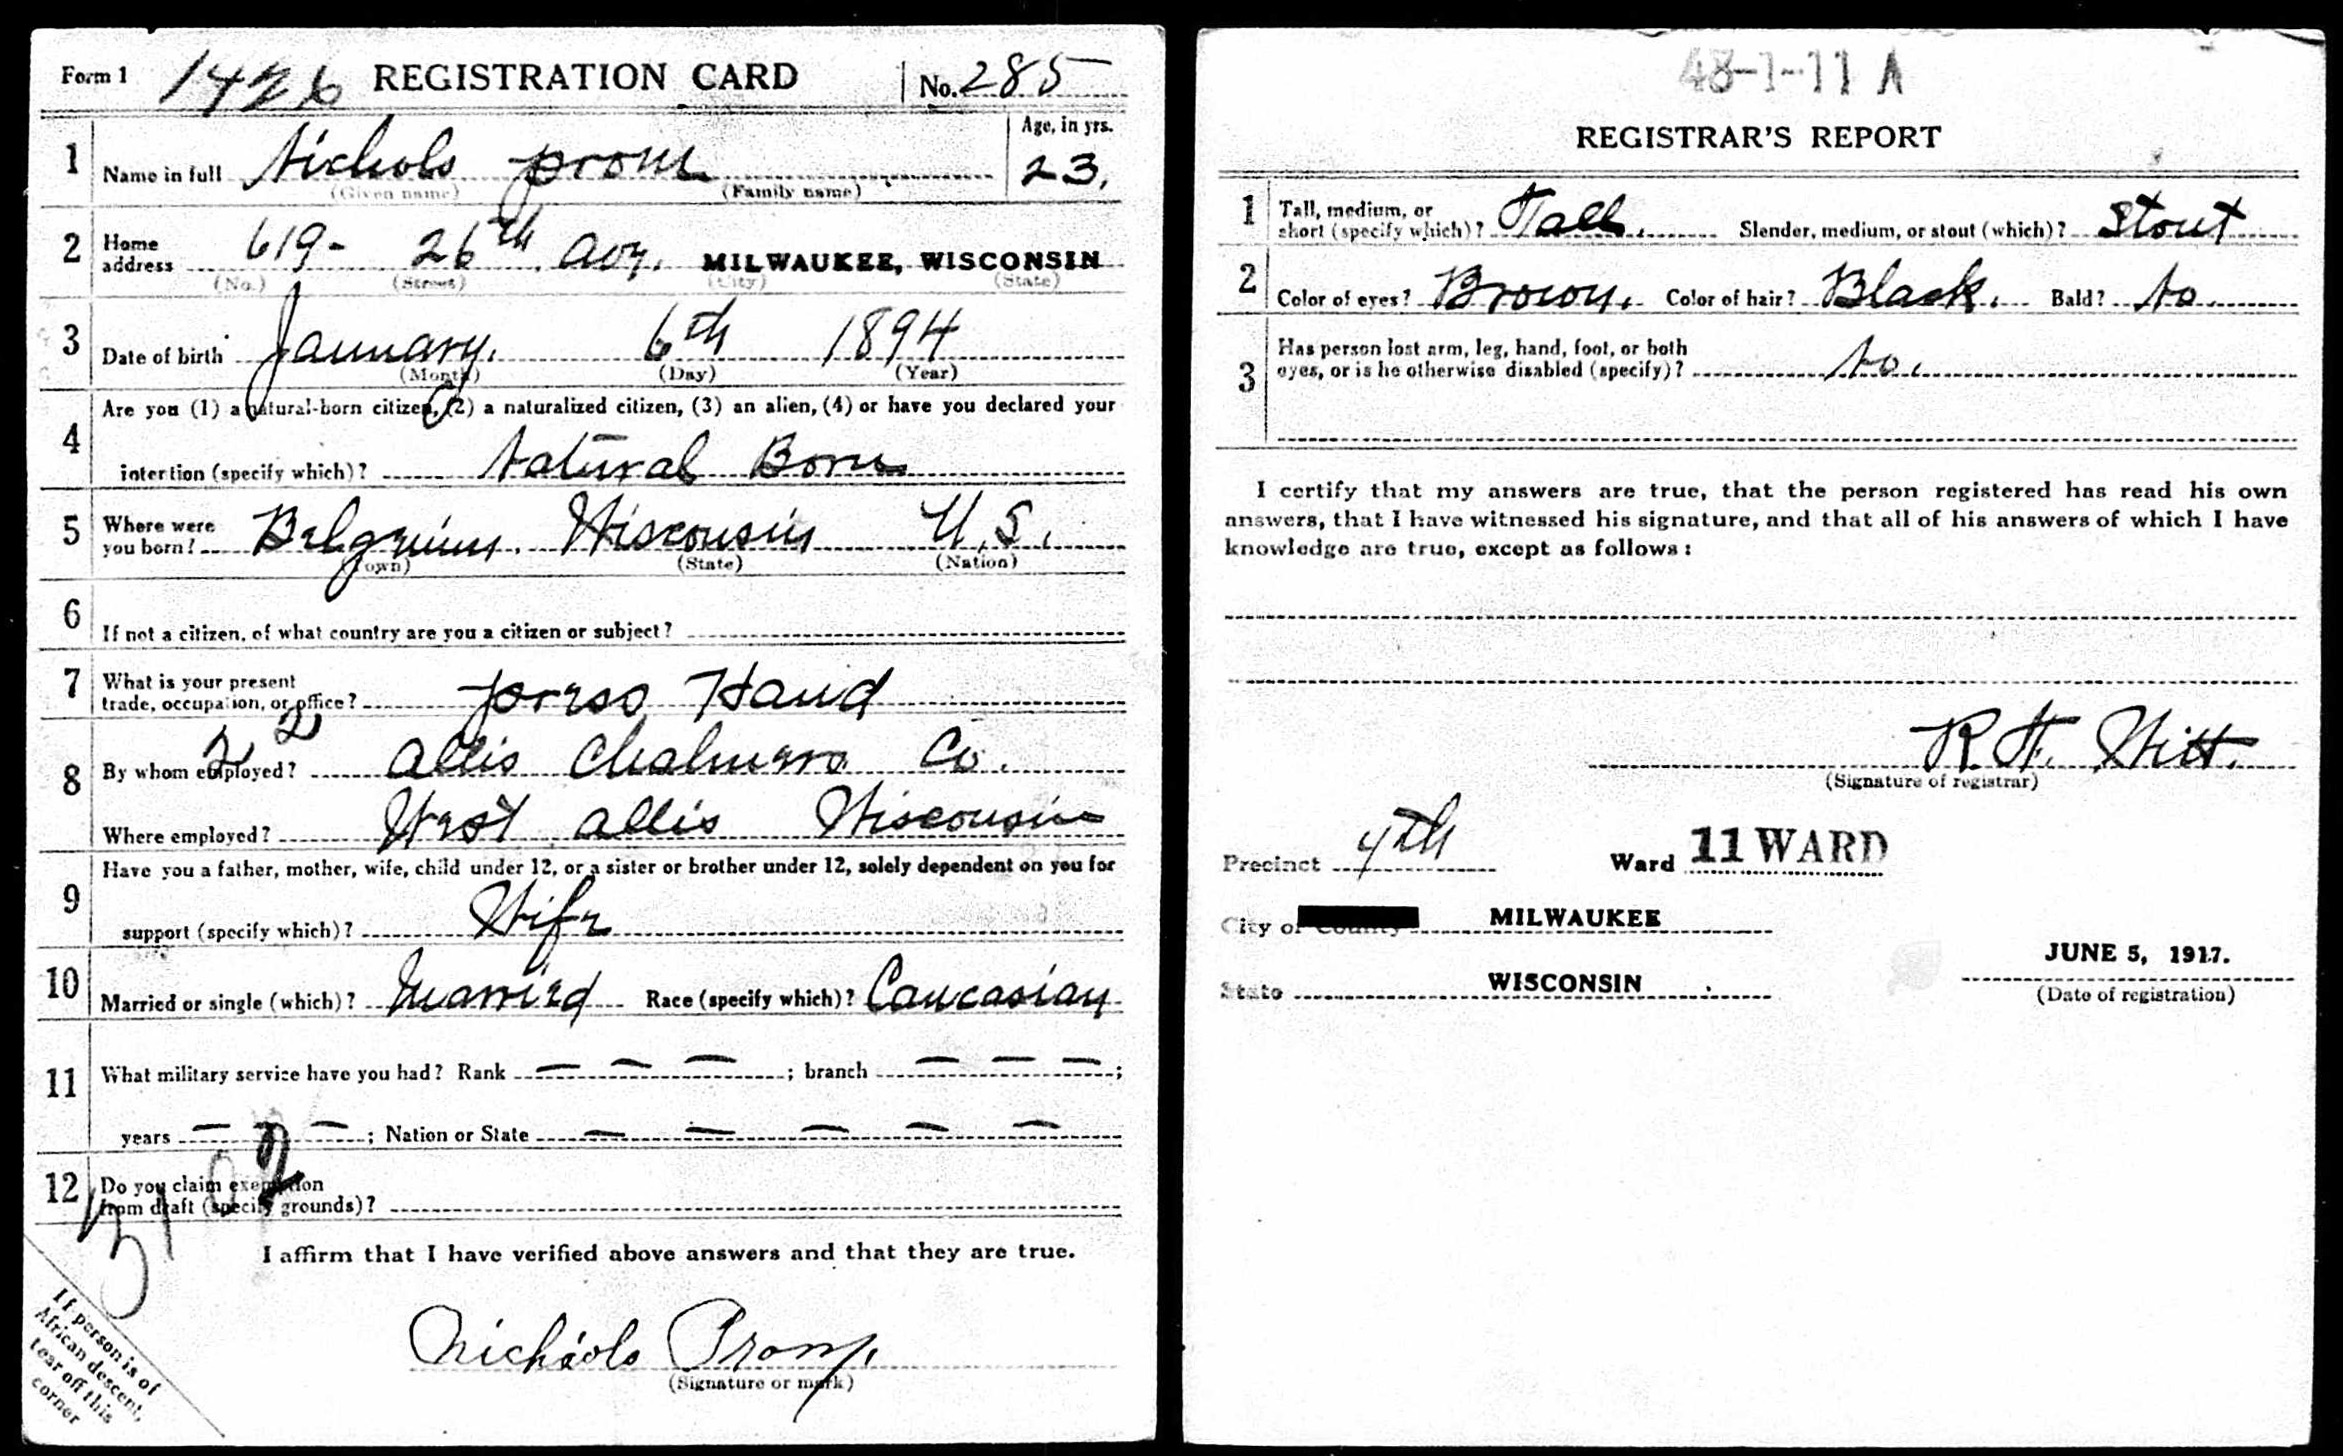 Form 1 1426 REGISTRATION CARD No. 285
1 Name in full Nichols Prom Age, in yrs. 23.
(Given name) (Family name)
2 Home address 619- 26th Avy. MILWAUKEE, WISCONSIN
(No.) (Street) (City) (State)
3 Date of birth January. 6th 1894
(Month) (Day) (Year)
Are you (1) a natural-born citizen, (2) a naturalized citizen, (3) an alien, (4) or have you declared your
4 intention (specify which)? Natural Born
5 Where were you born? Belgium. Wisconsin U.S.
(Town) (State) (Nation)
6 If not a citizen, of what country are you a citizen or subject?
7 What is your present
trade, occupation, or office? Press Hand
2 2
8 By whom employed? Allis Chalmers Co.
Where employed? West Allis Wisconsin
Have you a father, mother, wife, child under 12, or a sister or brother under 12, solely dependent on you for
9 support (specify which)? Wife
10 Married or single (which)? Married Race (specify which)? Caucasian
11 What military service have you had? Rank — — — ; branch — — — ;
years — — — ; Nation or State — — — — —
12 Do you claim exemption
from draft (specify grounds)?
I affirm that I have verified above answers and that they are true.
Nichäols Prom.
(Signature or mark)
If person is of
African descent,
tear off this
corner
48-1-11 A
REGISTRAR'S REPORT
1 Tall, medium, or
short (specify which)? Tall. Slender, medium, or stout (which)? Stout
2 Color of eyes? Brown. Color of hair? Black. Bald? No.
Has person lost arm, leg, hand, foot, or both
3 eyes, or is he otherwise disabled (specify)? No.
I certify that my answers are true, that the person registered has read his own
answers, that I have witnessed his signature, and that all of his answers of which I have
knowledge are true, except as follows:
R.H. Witt.
(Signature of registrar)
Precinct 4th Ward 11 WARD
City of County MILWAUKEE
JUNE 5, 1917.
State WISCONSIN
(Date of registration)